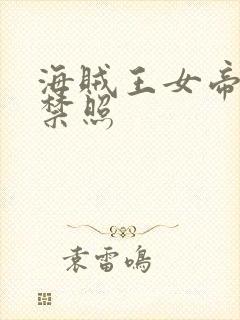 海贼王女帝
禁照
袁雷鸣